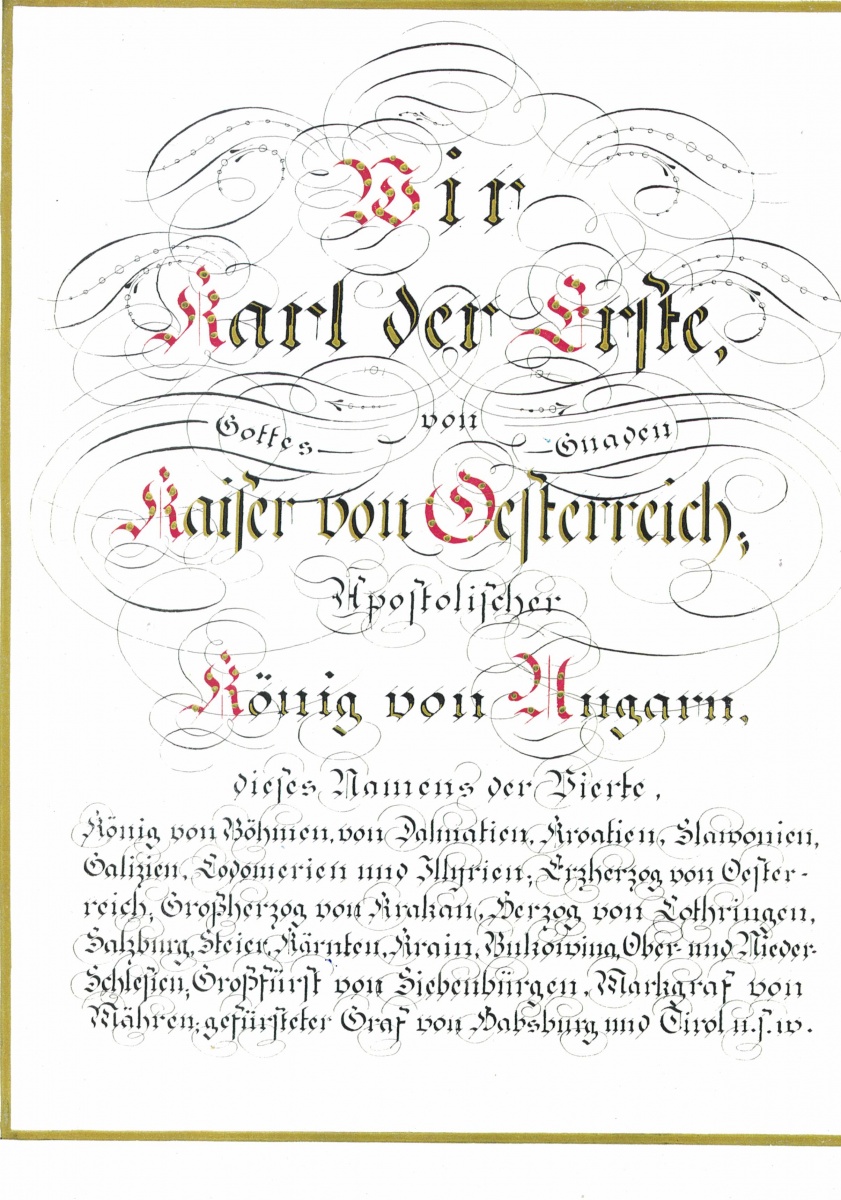 Wir
Karl der Erste,
Gottes von Gnaden
Kaiser von Oesterreich;
Apostolischer
König von Ungarn,
dieses Namens der Vierte,
König von Böhmen, von Dalmatien, Kroatien, Slawonien,
Galizien, Lodomerien und Illyrien; Erzherzog von Oester-
reich; Großherzog von Krakau, Herzog von Lothringen,
Salzburg, Steier, Kärnten, Krain, Bukowina, Ober- und Nieder-
Schlesien; Großfürst von Siebenbürgen, Markgraf von
Mähren; gefürsteter Graf von Habsburg und Tirol u. s. w.